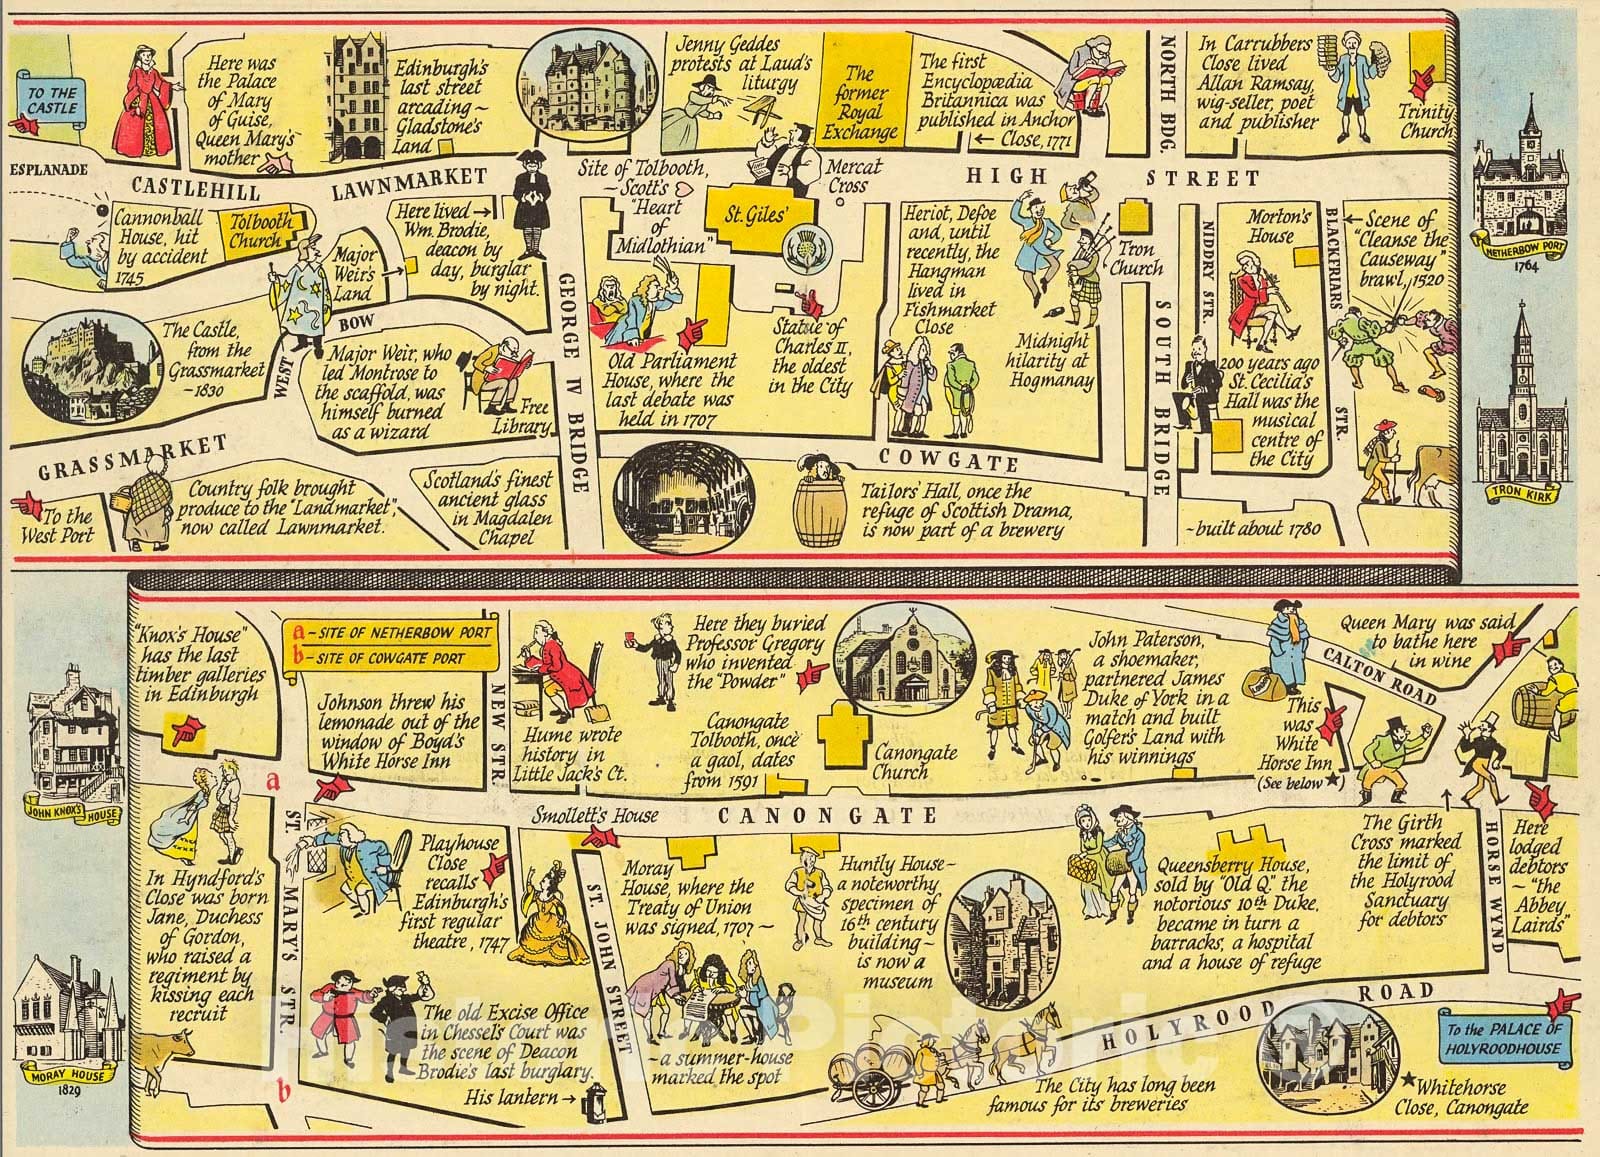 TO THE
CASTLE
Here was
the Palace
of Mary
of Guise,
Queen Mary's
mother
Edinburgh's
last street
arcading ~
Gladstone's
Land
Jenny Geddes
protests at Laud's
liturgy
The
former
Royal
Exchange
The first
Encyclopædia
Britannica was
published in Anchor
← Close, 1771
NORTH BDG.
In Carrubbers
Close lived
Allan Ramsay,
wig-seller, poet
and publisher
Trinity
Church
ESPLANADE
CASTLEHILL
LAWNMARKET
HIGH STREET
Cannonball
House, hit
by accident
1745
Tolbooth
Church
Major
Weir's
Land
Here lived →
Wm. Brodie,
deacon by
day, burglar
by night.
Site of Tolbooth,
~ Scott's
"Heart
of
Midlothian"
St. Giles'
Mercat
Cross
Heriot, Defoe
and, until
recently, the
Hangman
lived in
Fishmarket
Close
Midnight
hilarity at
Hogmanay
Tron
Church
NIDDRY STR.
Morton's
House
BLACKFRIARS
STR.
← Scene of
"Cleanse the
Causeway"
brawl, 1520
NETHERBOW PORT
1764
The Castle,
from the
Grassmarket
~1830
WEST
BOW
Major Weir, who
led Montrose to
the scaffold, was
himself burned
as a wizard
Free
Library
GEORGE IV BRIDGE
Old Parliament
House, where the
last debate was
held in 1707
Statue of
Charles II,
the oldest
in the City
SOUTH BRIDGE
200 years ago
St. Cecilia's
Hall was the
musical
centre of
the City
TRON KIRK
GRASSMARKET
COWGATE
To the
West Port
Country folk brought
produce to the "Landmarket",
now called Lawnmarket.
Scotland's finest
ancient glass
in Magdalen
Chapel
Tailors' Hall, once the
refuge of Scottish Drama,
is now part of a brewery
~built about 1780
"Knox's House"
has the last
timber galleries
in Edinburgh
a - SITE OF NETHERBOW PORT
b - SITE OF COWGATE PORT
Johnson threw his
lemonade out of the
window of Boyd's
White Horse Inn
NEW STR.
Hume wrote
history in
Little Jack's Ct.
Here they buried
Professor Gregory
who invented
the "Powder"
Canongate
Tolbooth, once
a gaol, dates
from 1591
Canongate
Church
John Paterson,
a shoemaker,
partnered James
Duke of York in a
match and built
Golfer's Land with
his winnings
This
was
White
Horse Inn
(See below ★)
Queen Mary was said
to bathe here
in wine
CALTON ROAD
JOHN KNOX'S HOUSE
a
CANONGATE
In Hyndford's
Close was born
Jane, Duchess
of Gordon,
who raised a
regiment by
kissing each
recruit
ST. MARY'S STR.
Playhouse
Close
recalls
Edinburgh's
first regular
theatre, 1747
Smollett's House
ST. JOHN STREET
Moray
House, where the
Treaty of Union
was signed, 1707 ~
~a summer-house
marked the spot
Huntly House ~
a noteworthy
specimen of
16th century
building ~
is now a
museum
Queensberry House,
sold by "Old Q." the
notorious 10th Duke,
became in turn a
barracks, a hospital
and a house of refuge
The Girth
Cross marked
the limit of
the Holyrood
Sanctuary
for debtors
HORSE WYND
Here
lodged
debtors
~ "the
Abbey
Lairds"
MORAY HOUSE
1829
b
The old Excise Office
in Chessel's Court was
the scene of Deacon
Brodie's last burglary.
His lantern →
HOLYROOD ROAD
The City has long been
famous for its breweries
To the PALACE OF
HOLYROODHOUSE
★Whitehorse
Close, Canongate
Historic Pictoric